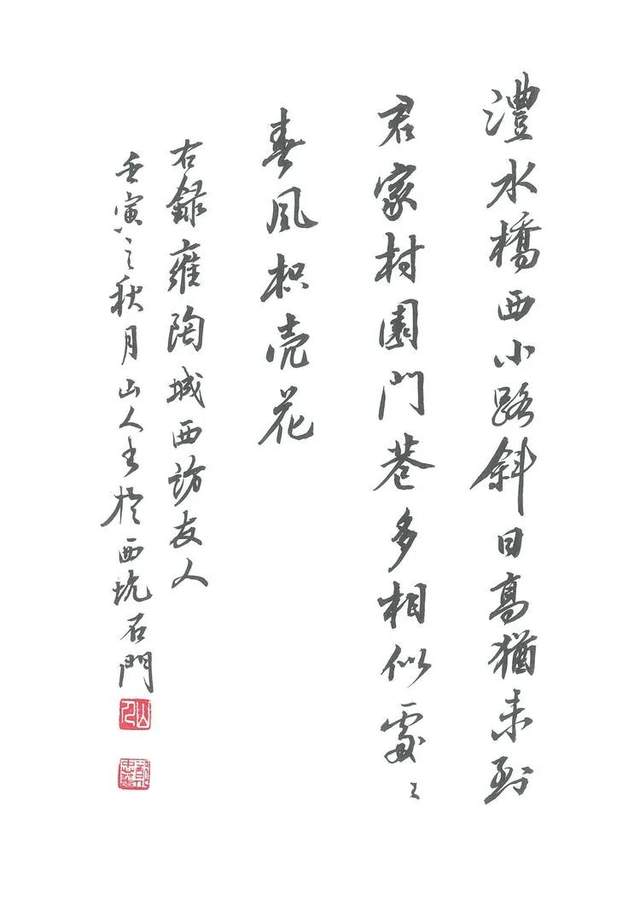 澧水橋西小路斜日高猶未到
君家村園門巷多相似處〻
春風枳壳花
右録雍陶城西訪友人
壬寅之秋月山人书於西坑石門
山人